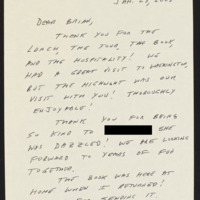 JAN. 23, 2002
DEAR BRIAN,
THANK YOU FOR THE
LUNCH, THE TOUR, THE BOOK,
AND THE HOSPITALITY! WE
HAD A GREAT VISIT TO WASHINGTON,
BUT THE HIGHLIGHT WAS OUR
VISIT WITH YOU! THOROUGHLY
ENJOYABLE!
THANK YOU FOR BEING
SO KIND TO SHE
WAS DAZZLED! WE ARE LOOKING
FORWARD TO YEARS OF FUN
TOGETHER.
THE BOOK WAS HERE AT
HOME WHEN I RETURNED!
FOR SENDING IT